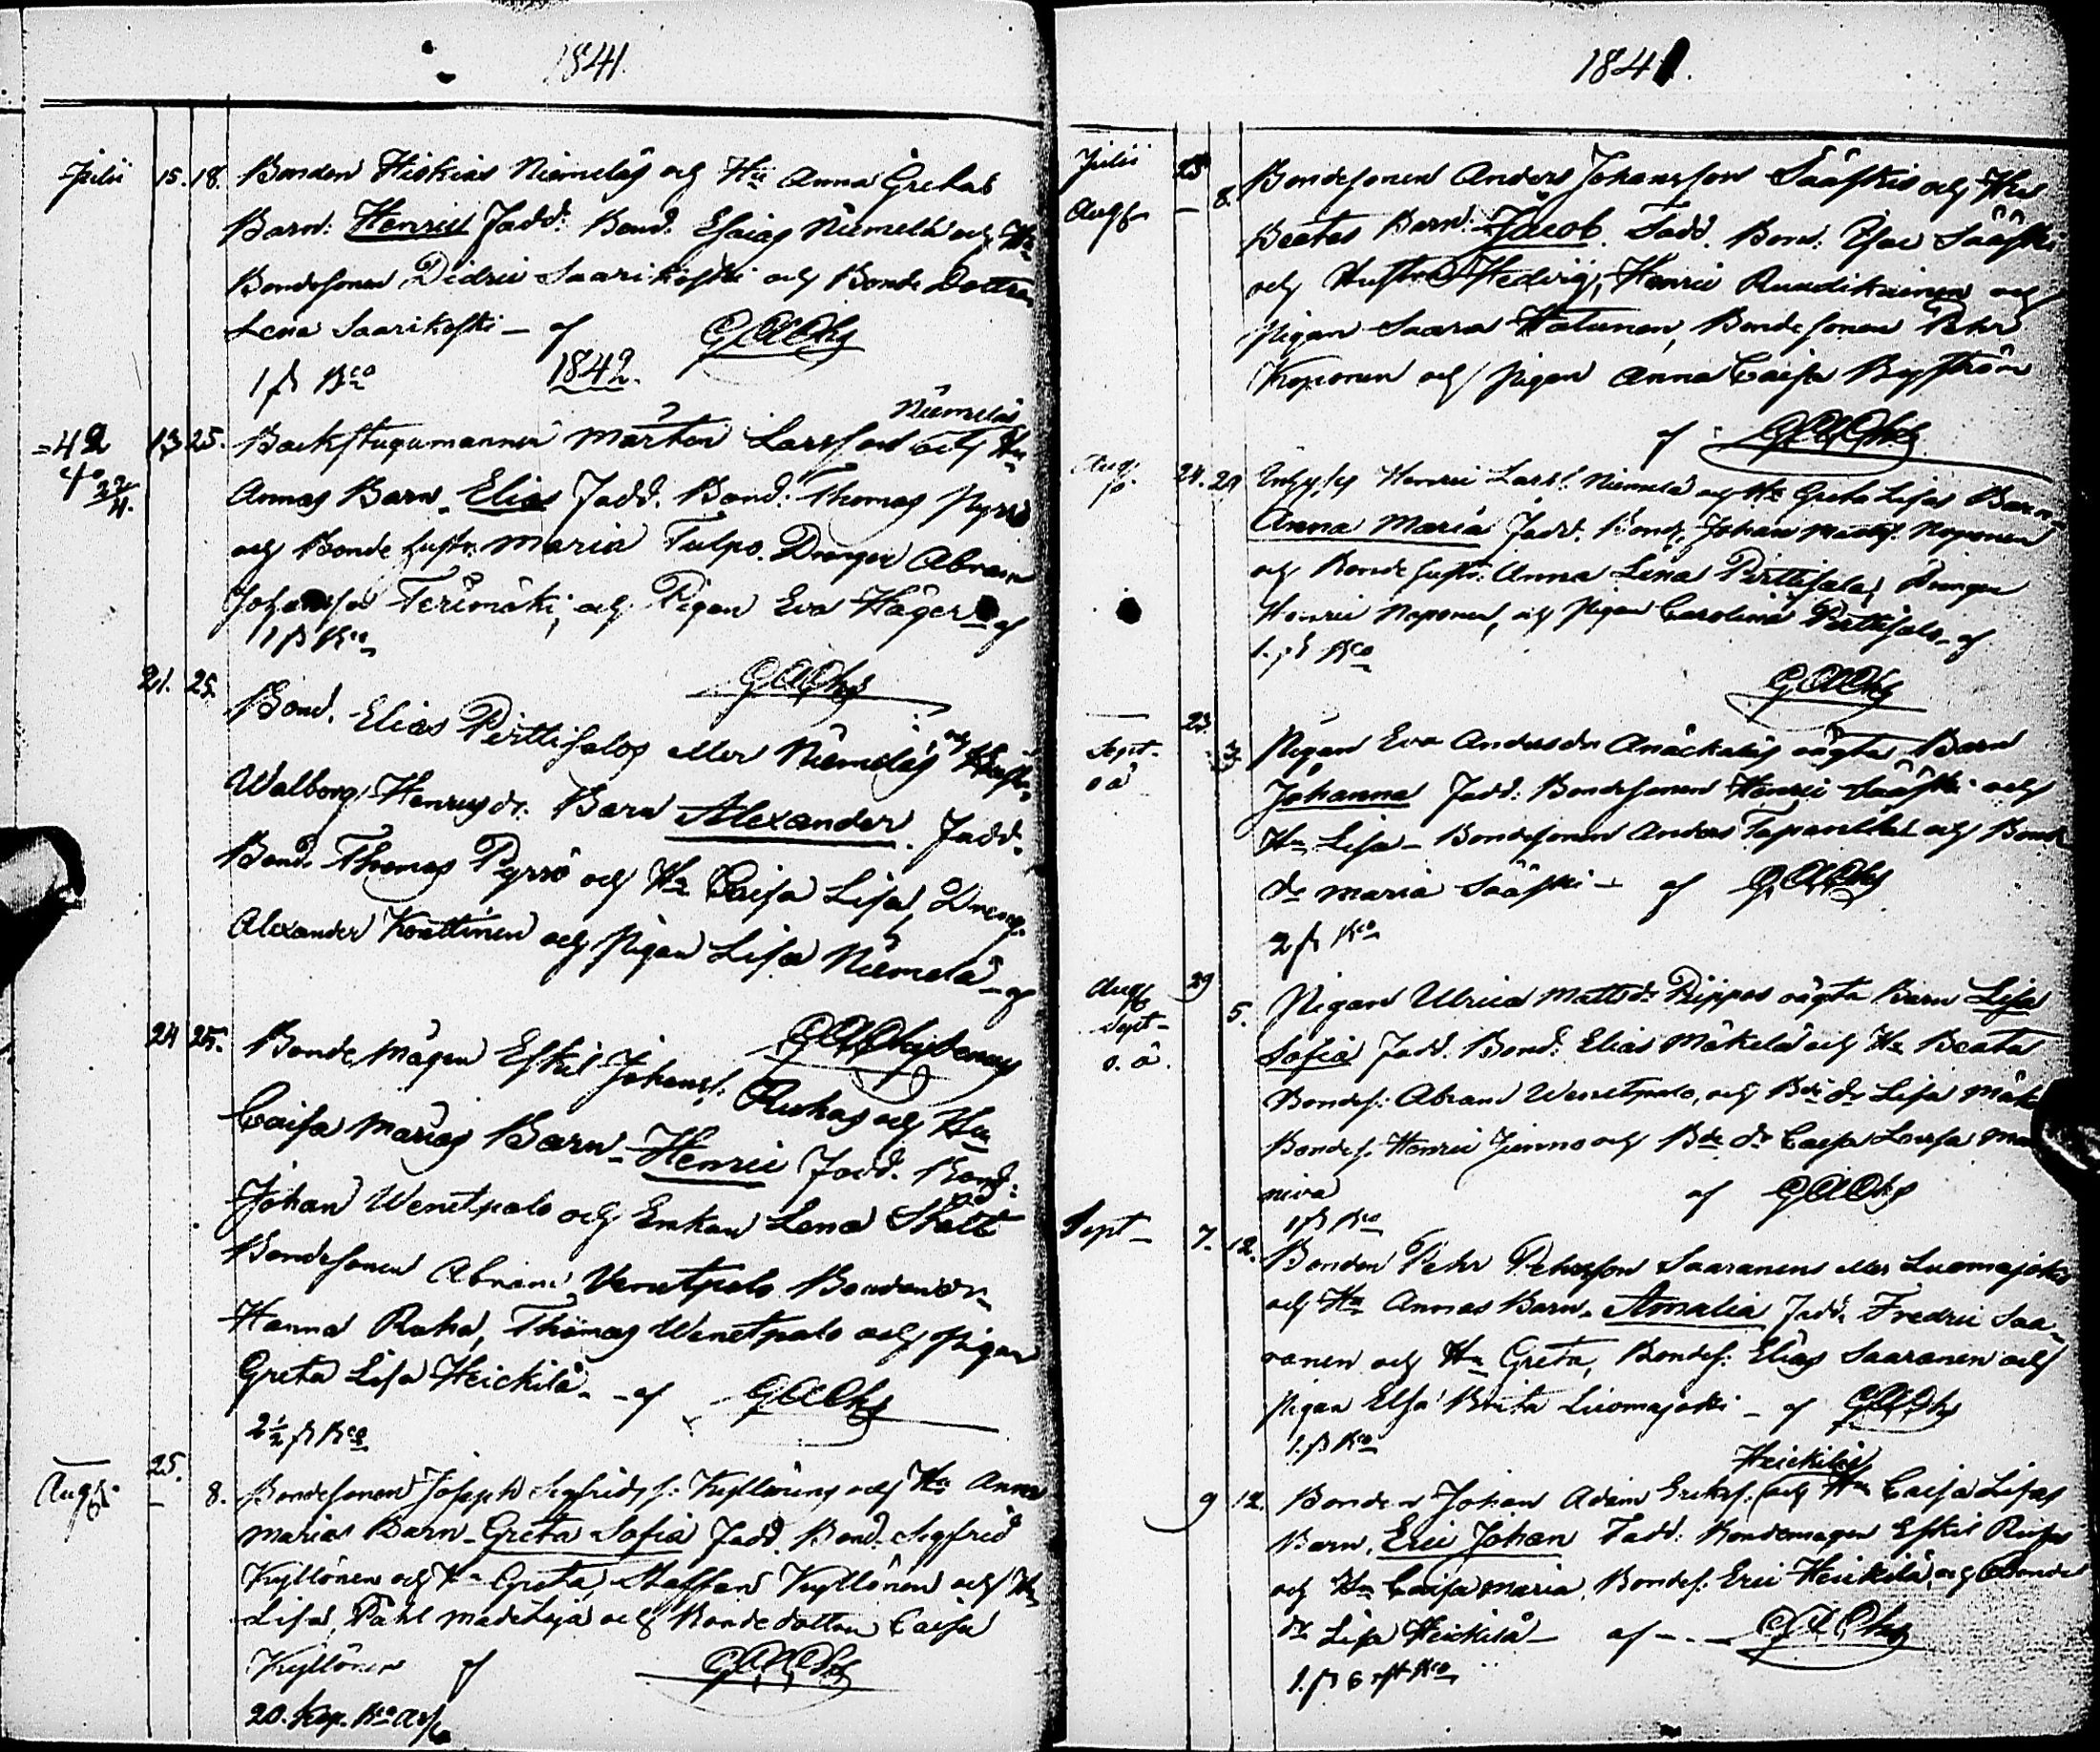 1841.
Julii 15. 18. Bonden Hiskias Niemeläs och Hu Anna Gretas
Barn: Henric Fadd: Bond. Esaias Niemelä och Hu
Bondesonen Didric Saarikoski och Bonde Dottren
Lena Saarikoski – af
1 ß Bco 1842.
Niemelä
-42 13 25. Backstugumannen Mårten Larsson och Hu
Annas Barn. Elias Fadd. Bond: Thomas Pyrrö
och Bonde hustr. Maria Tulpo. Drengen Abram
Johansson Terimäki, och Pigan Eva Häger – af
1 ß Bco
21. 25. Bond. Elias Pirttisalos eller Niemeläs och Hustr.
Walborg Henrysdr. Barn Alexander. Fadd.
Bond. Thomas Pyrrö och Hu Caisa Lisa, Dreng.
Alexander Konttinen och Pigan Lisa Niemelä – af
24 25. Bonde mågen Eskil Johanss. Ruhas och Hu
Caisa Marias Barn – Henric Fadd. Bond:
Johan Wenetpalo och Enkan Lena Stält
Bondesonen Abram Venetpalo Bondedr.
Hanna Ruha, Thomas Wenetpalo och Pigan
Greta Lisa Heickilä – af
2½ ß Bco
25.
Aug. – 8. Bondesonen Joseph Segfridss: Kyllönens och Hu Anna
Marias Barn – Greta Sofia Fadd. Bond. Segfrid
Kyllönen och Hu Greta, Staffan Kyllönen och Hu
Lisa, Påhl Madetoja och Bondedottren Caisa
Kyllönen af
20. Kop. Bco
1841.
Julii 28
Aug – 8. Bondesonen Anders Johansson Sääskis och Hus
Beatas Barn: Jacob. Fadd. Bond: Isac Sääski
och Hustru Hedvig, Henric Ruadikainen och
Pigan Saara Hatunen, Bondesonen Petr
Koponen och Pigan Anna Caisa Byström
af
Aug. 24. 29 Henric Larss. Niemelä och Hu Greta Lisas Barn
Anna Maria Fadd. Bond. Johan Matts. Moponen
och Bonde hustr: Anna Lena Pirttisalo, Drengen
Henric Moponen, och Pigan Carolina Pirttisalo. af
1. ß Bco
23.
Sept. 5. Pigan Eva Andersdr Anäckaläs oägta Barn
o ä Johanna Fadd: Bondesonen Henric Sääski och
Hu Lisa – Bondesonen Anders Tapanikkal och Bonde
dr Maria Sääski – af
2 ß Bco
Aug 29
Sept – 5. Pigan Ulrica Mattsdr Pippos oägta Barn Lisa
o. ä. Sofia Fadd. Bond: Elias Mäkelä och Hu Beata
Bondes: Abram Wenetpalo, och Bde dr Lisa Mäk
Bondes. Henric Junno och Bde dr Caisa Lovisa Ma
niva af
1 ß Bco
Sept – 7. 12. Bonden Petr Pehrsson Saaranens eller Luomajokis
och Hu Annas Barn. Amalia Fadd. Fredric Saa-
ranen och Hu Greta, Bondes: Elias Saaranen och
Pigan Elsa Brita Luomajoki – af
1. ß Bco
Heickiläs
9 12. Bonden Johan Adam Erikss. och Hu Caisa Lisas
Barn, Eric Johan Fadd: Bondemågen Eskil Ruha
och Hu Caisa Maria. Bondes: Eric Heickilä, och Bonde
dr Lisa Heickilä – af
1. ß 6 rst Bco